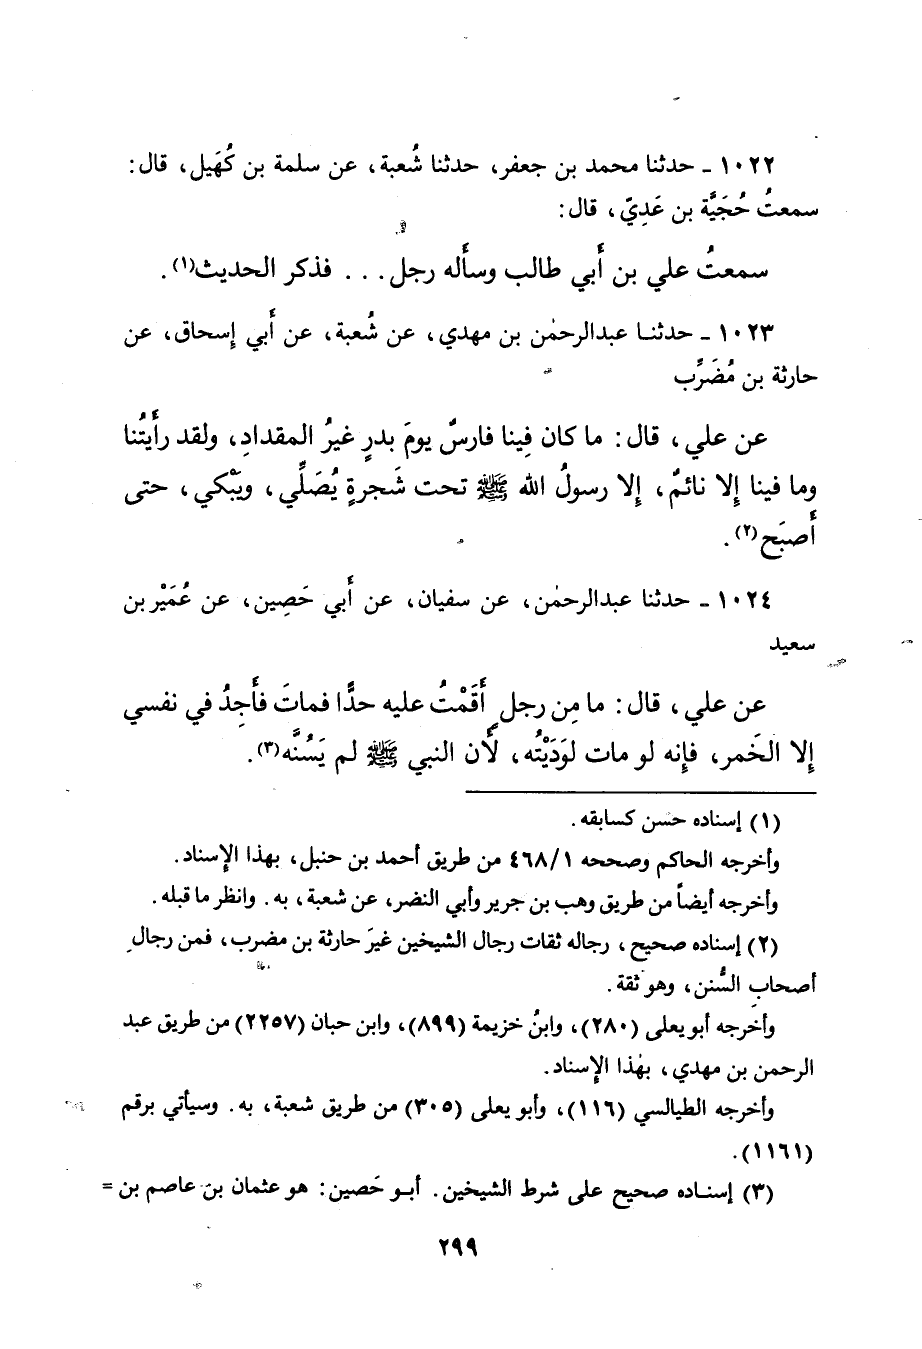 ١٠٢٢ ـ حدثنا محمد بن جعفر، حدثنا شُعبة، عن سلمة بن كُهَيل، قال:
سمعتُ حُجَيَّة بن عَدِيّ، قال:
سمعتُ علي بن أَبي طالب وسأَله رجل... فذكر الحديث(١).
١٠٢٣ ـ حدثنا عبدالرحمٰن بن مهدي، عن شُعبة، عن أَبي إِسحاق، عن
حارثة بن مُضَرِّب
عن علي، قال: ما كان فِينا فارسٌ يومَ بدرٍ غيرُ المقدادِ، ولقد رأَيتُنا
وما فينا إِلا نائمٌ، إِلا رسولُ الله ﷺ تحت شَجرةٍ يُصَلِّي، ويَبْكي، حتى
أَصبَح(٢).
١٠٢٤ ـ حدثنا عبدالرحمٰن، عن سفيان، عن أَبي حَصِين، عن عُمَيْر بن
سعيد
عن علي، قال: ما مِن رجل أَقَمْتُ عليه حدًّا فماتَ فأَجِدُ في نفسي
إِلا الخَمر، فإِنه لو مات لوَدَيْتُه، لأَن النبي ﷺ لم يَسُنَّه(٣).
(١) إسناده حسن كسابقه.
وأخرجه الحاكم وصححه ٤٦٨/١ من طريق أحمد بن حنبل، بهذا الإسناد.
وأخرجه أيضاً من طريق وهب بن جرير وأبي النضر، عن شعبة، به. وانظر ما قبله.
(٢) إسناده صحيح، رجاله ثقات رجال الشيخين غيرَ حارثة بن مضرب، فمن رجال
أصحاب السُّنن، وهو ثقة.
وأخرجه أبو يعلى (٢٨٠)، وابنُ خزيمة (٨٩٩)، وابن حبان (٢٢٥٧) من طريق عبد
الرحمن بن مهدي، بهٰذا الإسناد.
وأخرجه الطيالسي (١١٦)، وأبو يعلى (٣٠٥) من طريق شعبة، به. وسيأتي برقم
(١١٦١).
(٣) إسناده صحيح على شرط الشيخين. أبو حَصين: هو عثمان بن عاصم بن =
٢٩٩